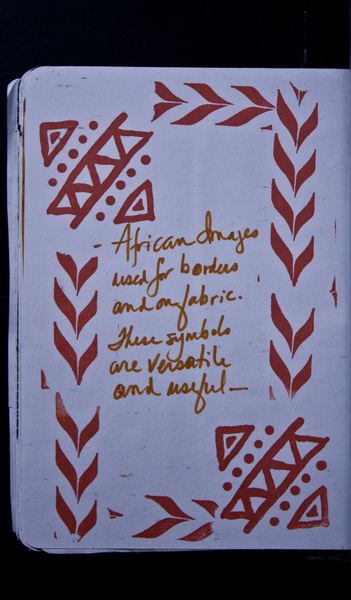 - African Images
used for borders
and on fabric.
These symbols
are versatile
and useful -